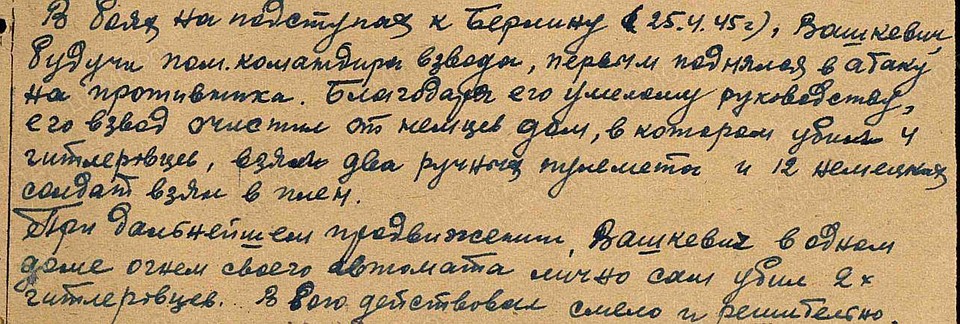 В боях на подступах к Берлину (25.4.45г), Вашкевич,
будучи пом. командира взвода, первым поднялся в атаку
на противника. Благодаря его умелому руководству,
его взвод очистил от немцев дом, в котором убил 4
гитлеровцев, взял два ручных пулемета и 12 немецких
солдат взял в плен.
При дальнейшем продвижении, Вашкевич в одном
доме огнем своего автомата лично сам убил 2х
гитлеровцев. В бою действовал смело и решительно.